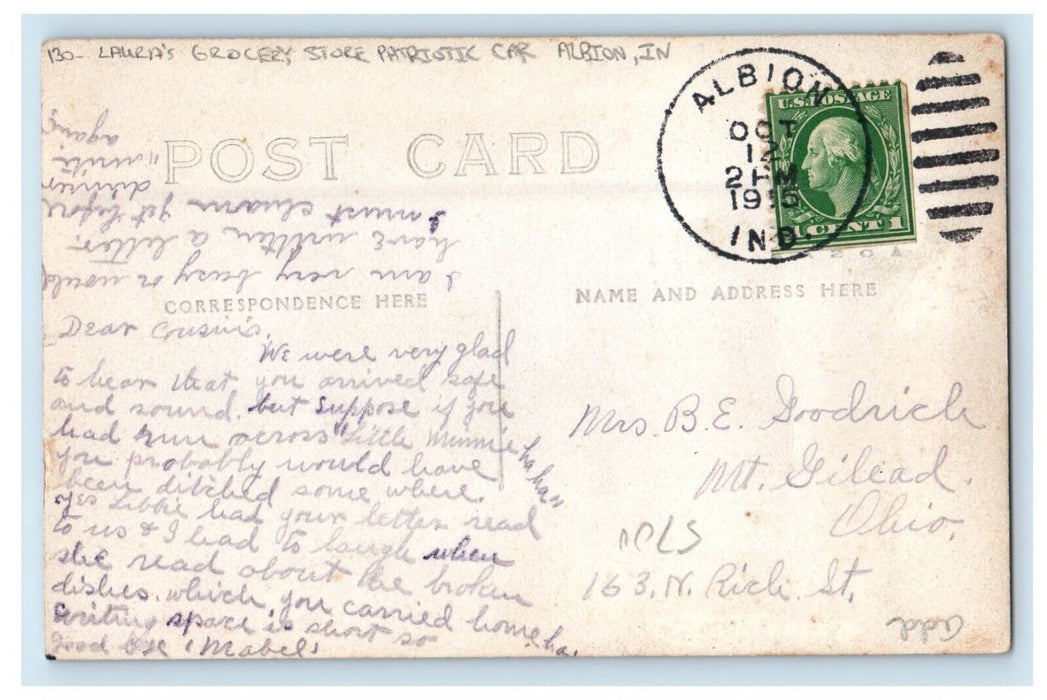 130- LAURA'S GROCERY STORE PATRIOTIC CAR ALBION, IN
POST CARD
ALBION
OCT
12
2 PM
IND
U.S. POSTAGE
1 CENT 1
CORRESPONDENCE HERE
NAME AND ADDRESS HERE
Dear Cousins,
We were very glad
to hear that you arrived safe
and sound, but suppose if you
had run across "Little Minnie ha ha"
you probably would have
been ditched some where.
Yes Libbie had your letter read
to us & I had to laugh when
she read about the broken
dishes, which you carried home ha.
writing space is short so
good bye (Mabel)
I am very busy or would
have written a letter.
I must churn yet before
dinner
"write
again"
Mrs. B.E. Goodrich
Mt. Gilead.
Ohio.
163. N. Rich St.